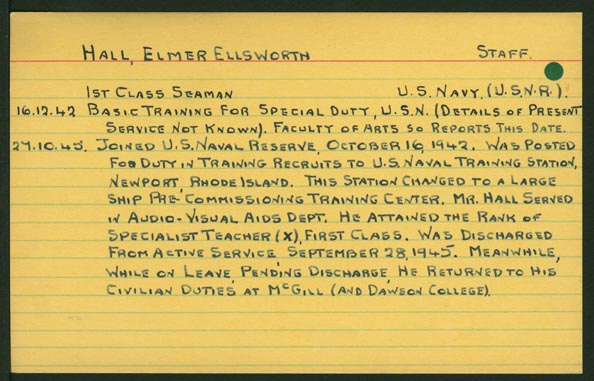 HALL, ELMER ELLSWORTH STAFF.
1ST CLASS SEAMAN U.S. NAVY. (U.S.N.R.).
16.12.42 BASIC TRAINING FOR SPECIAL DUTY, U.S.N. (DETAILS OF PRESENT
SERVICE NOT KNOWN). FACULTY OF ARTS SO REPORTS THIS DATE.
29.10.45. JOINED U.S. NAVAL RESERVE, OCTOBER 16, 1942. WAS POSTED
FOR DUTY IN TRAINING RECRUITS TO U.S. NAVAL TRAINING STATION,
NEWPORT, RHODE ISLAND. THIS STATION CHANGED TO A LARGE
SHIP PRE-COMMISSIONING TRAINING CENTER. MR. HALL SERVED
IN AUDIO-VISUAL AIDS DEPT. HE ATTAINED THE RANK OF
SPECIALIST TEACHER (X), FIRST CLASS. WAS DISCHARGED
FROM ACTIVE SERVICE, SEPTEMBER 28, 1945. MEANWHILE,
WHILE ON LEAVE, PENDING DISCHARGE, HE RETURNED TO HIS
CIVILIAN DUTIES AT MCGILL (AND DAWSON COLLEGE).